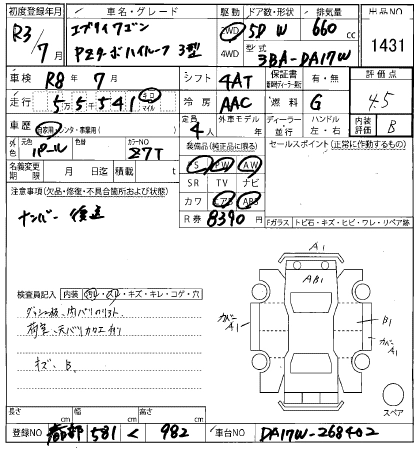 初度登録年月 車名・グレード 駆動 ドア数・形状 排気量 出品NO
R3/7月 エブリイワゴン PZターボハイルーフ 3型 2WD 4WD 5D W 660 cc 1431
型式 3BA-DA17W
車検 R8年7月 シフト 4AT 保証書 有・無 評価点
走行 5万5千541 キロ マイル 冷房 AAC 燃料 G 4.5
車歴 自家用・レンタ・事業用( ) 定員 4人 外車モデル 年 ディーラー 並行 ハンドル 左・右 内装評価 B
外色 元色 パール 色替 カラーNO Z7T
装備品(純正品に限る) セールスポイント(正常に作動するもの)
名義変更期限 月 日迄 積載 t
S PW AW
SR TV ナビ
カワ エアB ABS
R券 8390円
注意事項(欠品・修復・不具合箇所および状態)
ナンバー 後送
Fガラス トビ石・キズ・ヒビ・ワレ・リペア跡
A1
AB1
カバー A1
B1
カバー A1
スペア
検査員記入 内装 汚レ・スレ・キズ・キレ・コゲ・穴
キズ、B.
長さ cm 幅 cm 高さ cm
登録NO 581 く 982 車台NO DA17W-268402